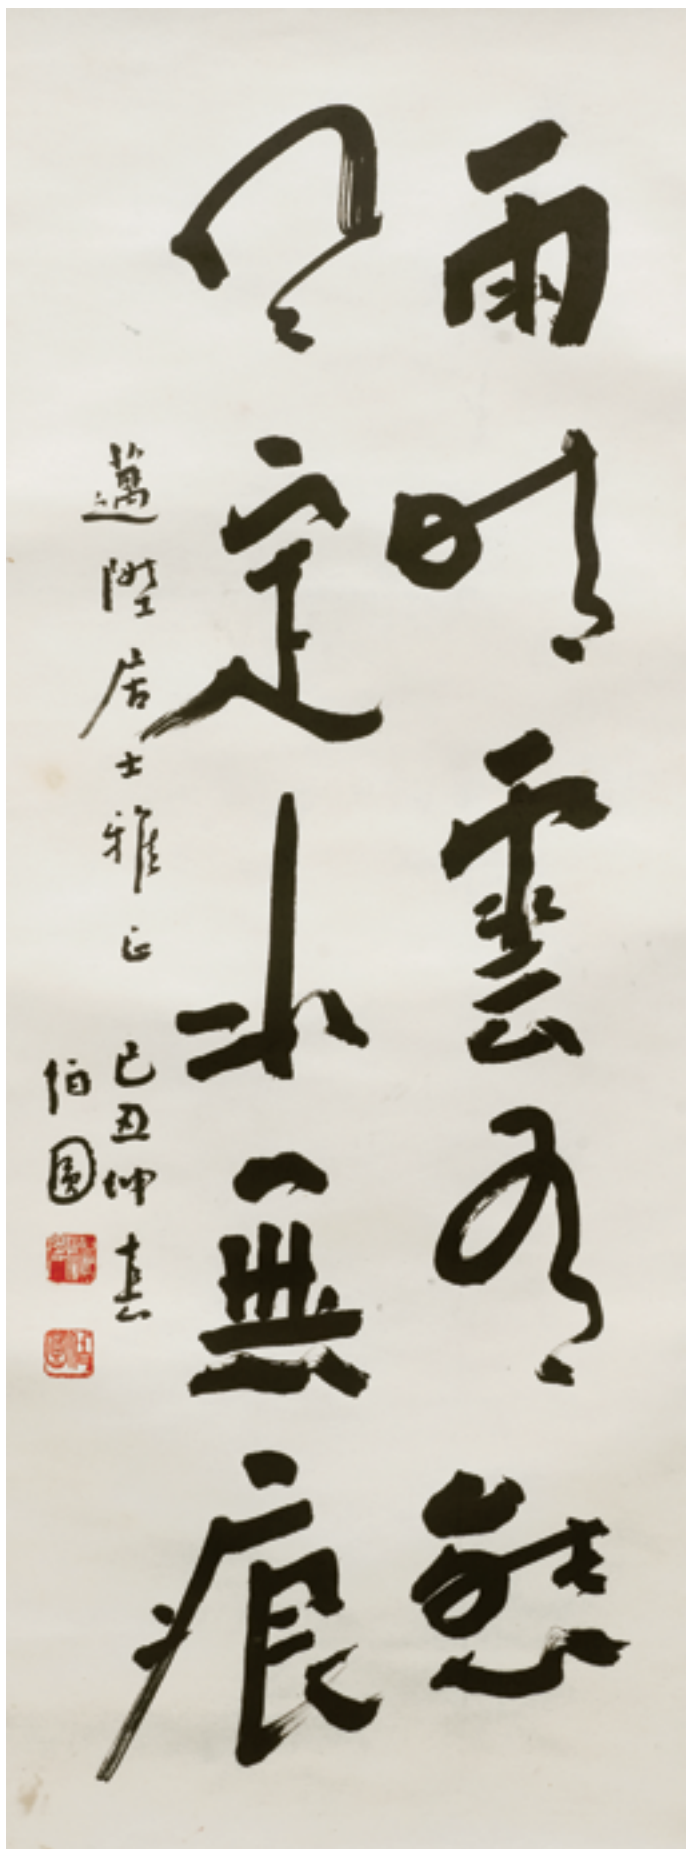 雨晴雲有態
風定水無痕
邁陞居士雅正 己丑仲春
伯圓